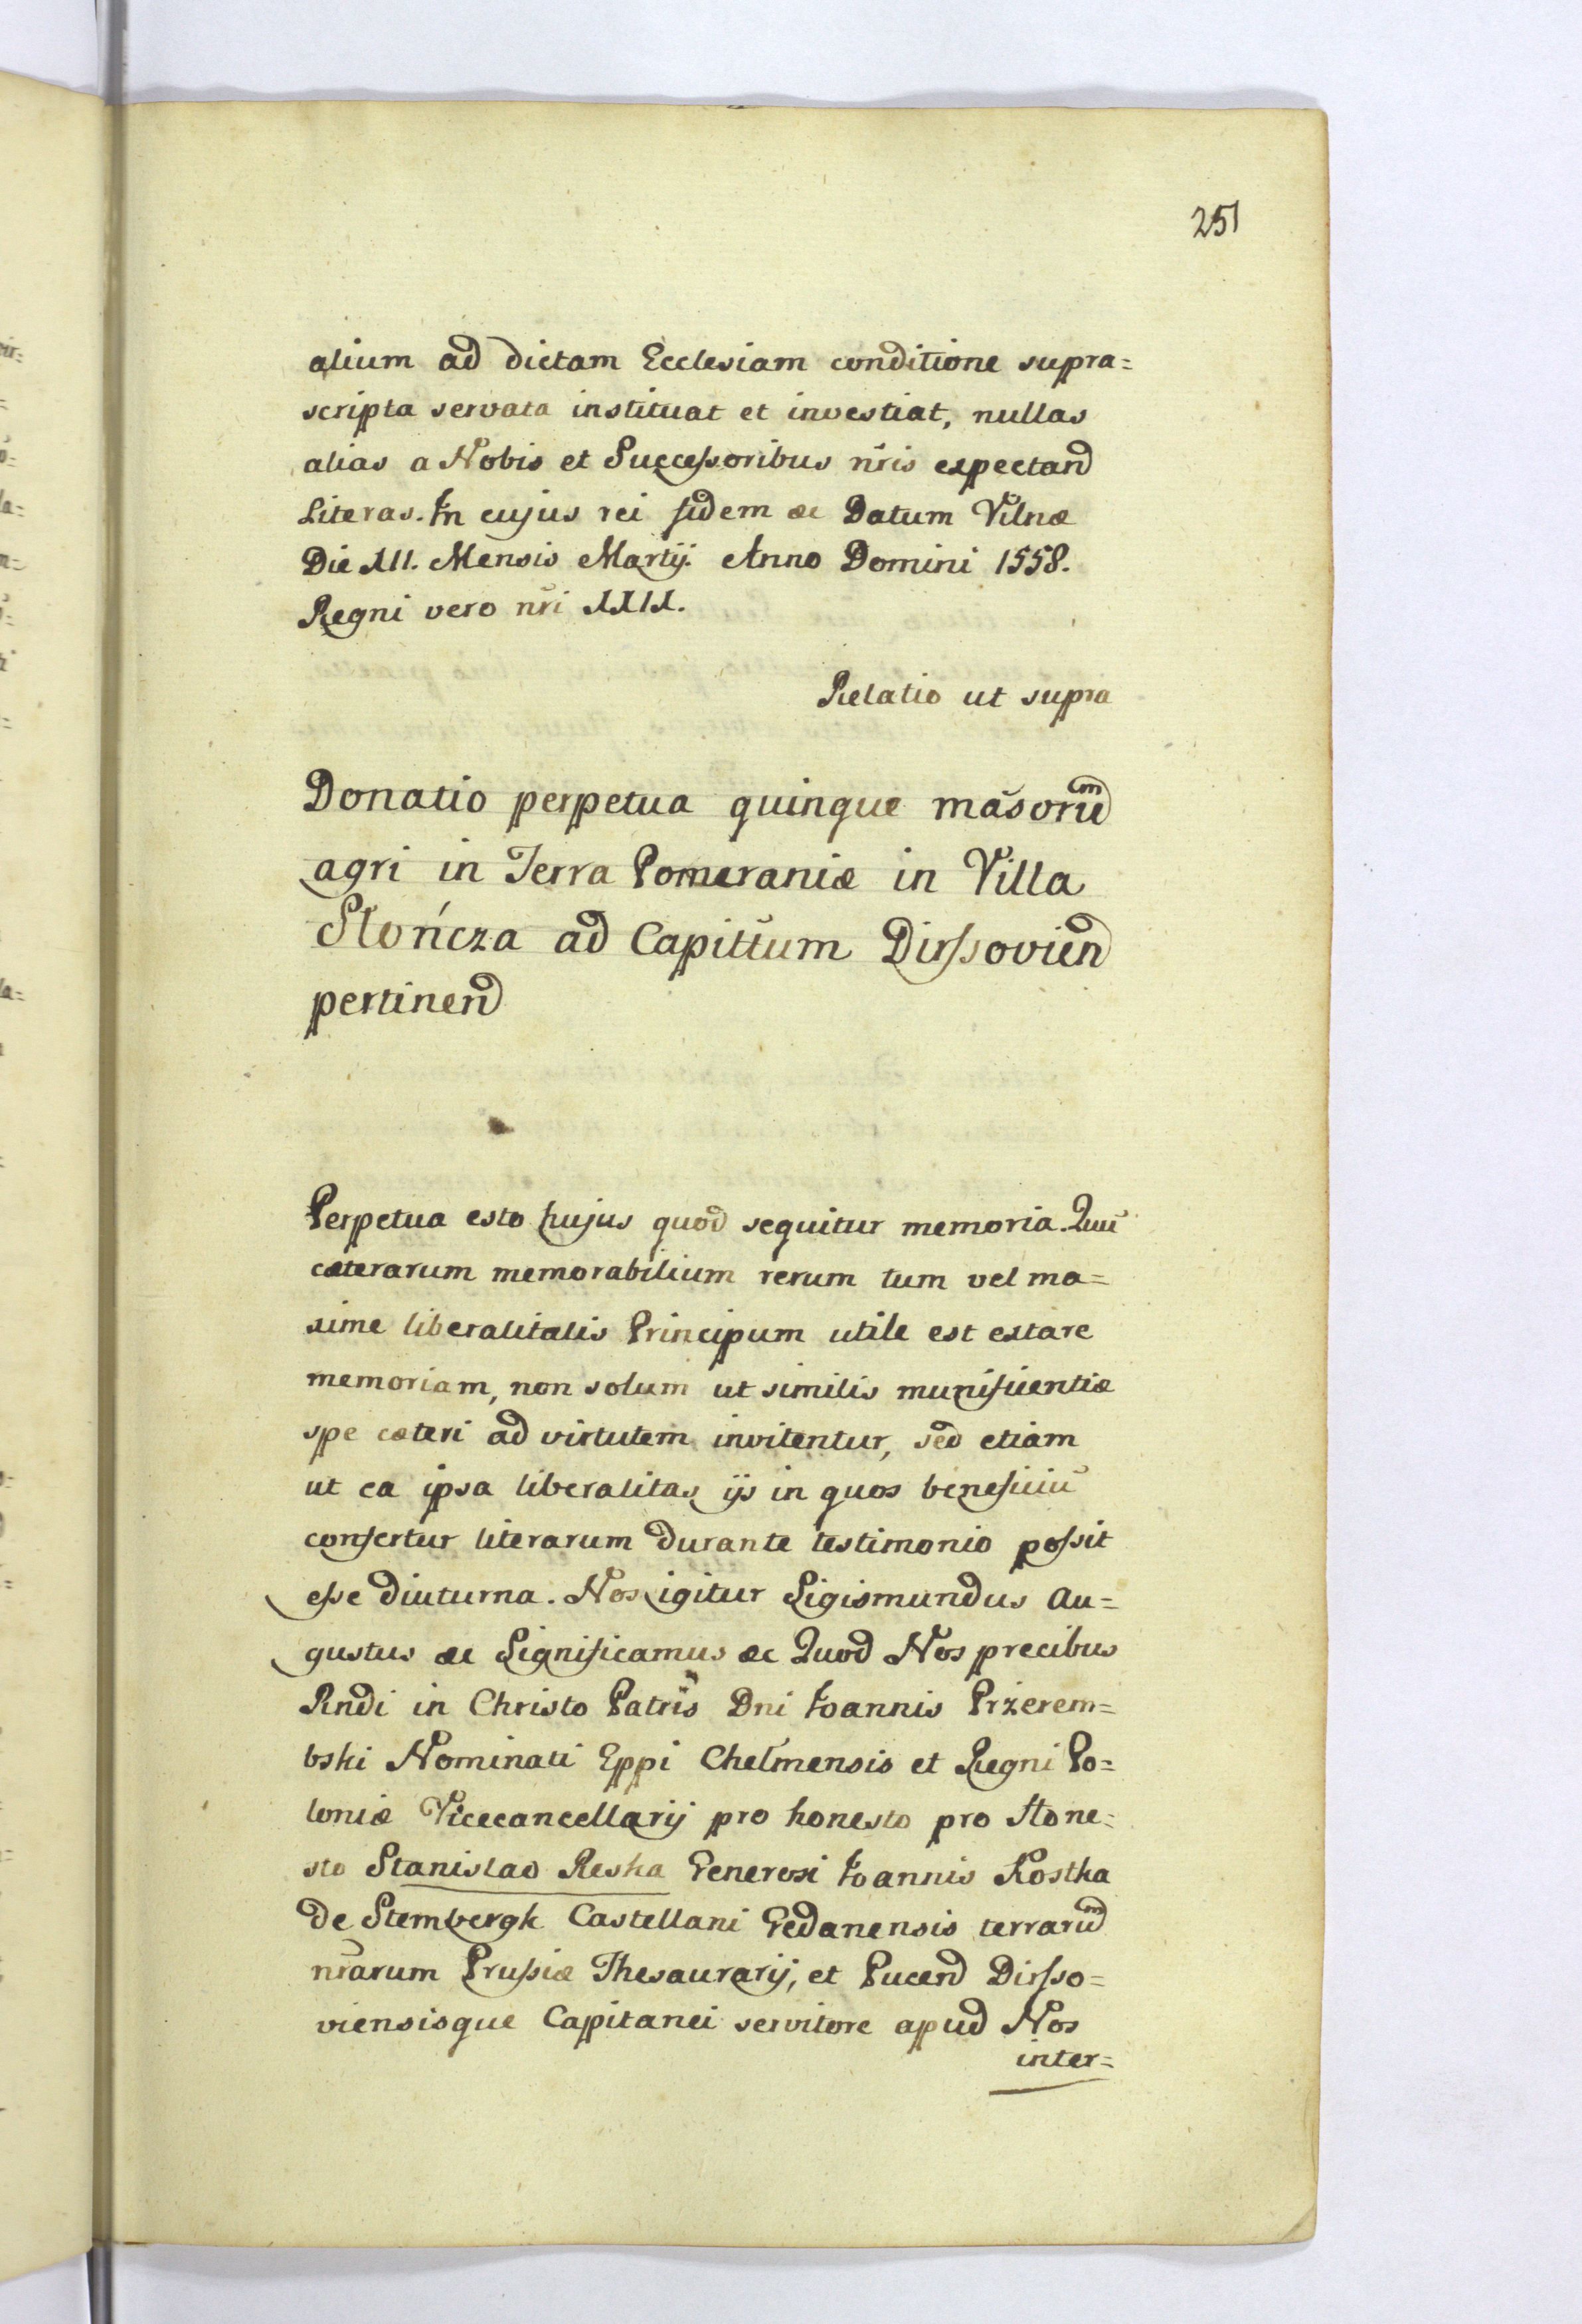 251
alium ad dictam Ecclesiam conditione supra=
scripta servata instituat et investiat, nullas
alias a Nobis et Successoribus nr̃is expectand
Literas. In cujus rei fidem &c Datum Vilnæ
Die XII. Mensis Martij. Anno Domini 1558.
Regni vero nr̃i XXIX.
Relatio ut supra
Donatio perpetua quinque mãsorum
agri in Terra Pomeraniæ in Villa
Slończa ad Capitt̃um Dirssovien̄
pertinend
Perpetua esto hujus quod sequitur memoria. Quū
cæterarum memorabilium rerum tum vel ma=
xime liberalitatis Principum utile est extare
memoriam, non solum ut similis munificentiæ
spe cæteri ad virtutem invitentur, sed etiam
ut ea ipsa liberalitas ijs in quos beneficiū
confertur literarum durante testimonio possit
esse diuturna. Nos igitur Sigismundus Au=
gustus &c Significamus &c Quod Nos precibus
Rndi in Christo Patris Dni Joannis Przerem=
bski Nominati Eppi Chełmensis et Regni Po=
loniæ Vicecancellarij pro honesto pro Hone=
sto Stanislao Reska Generosi Joannis Kostka
de Stembergk Castellani Gedanensis terrarum
nr̃arum Prussiæ Thesaurarij, et Pucend Dirsso=
viensisque Capitanei servitore apud Nos
inter=